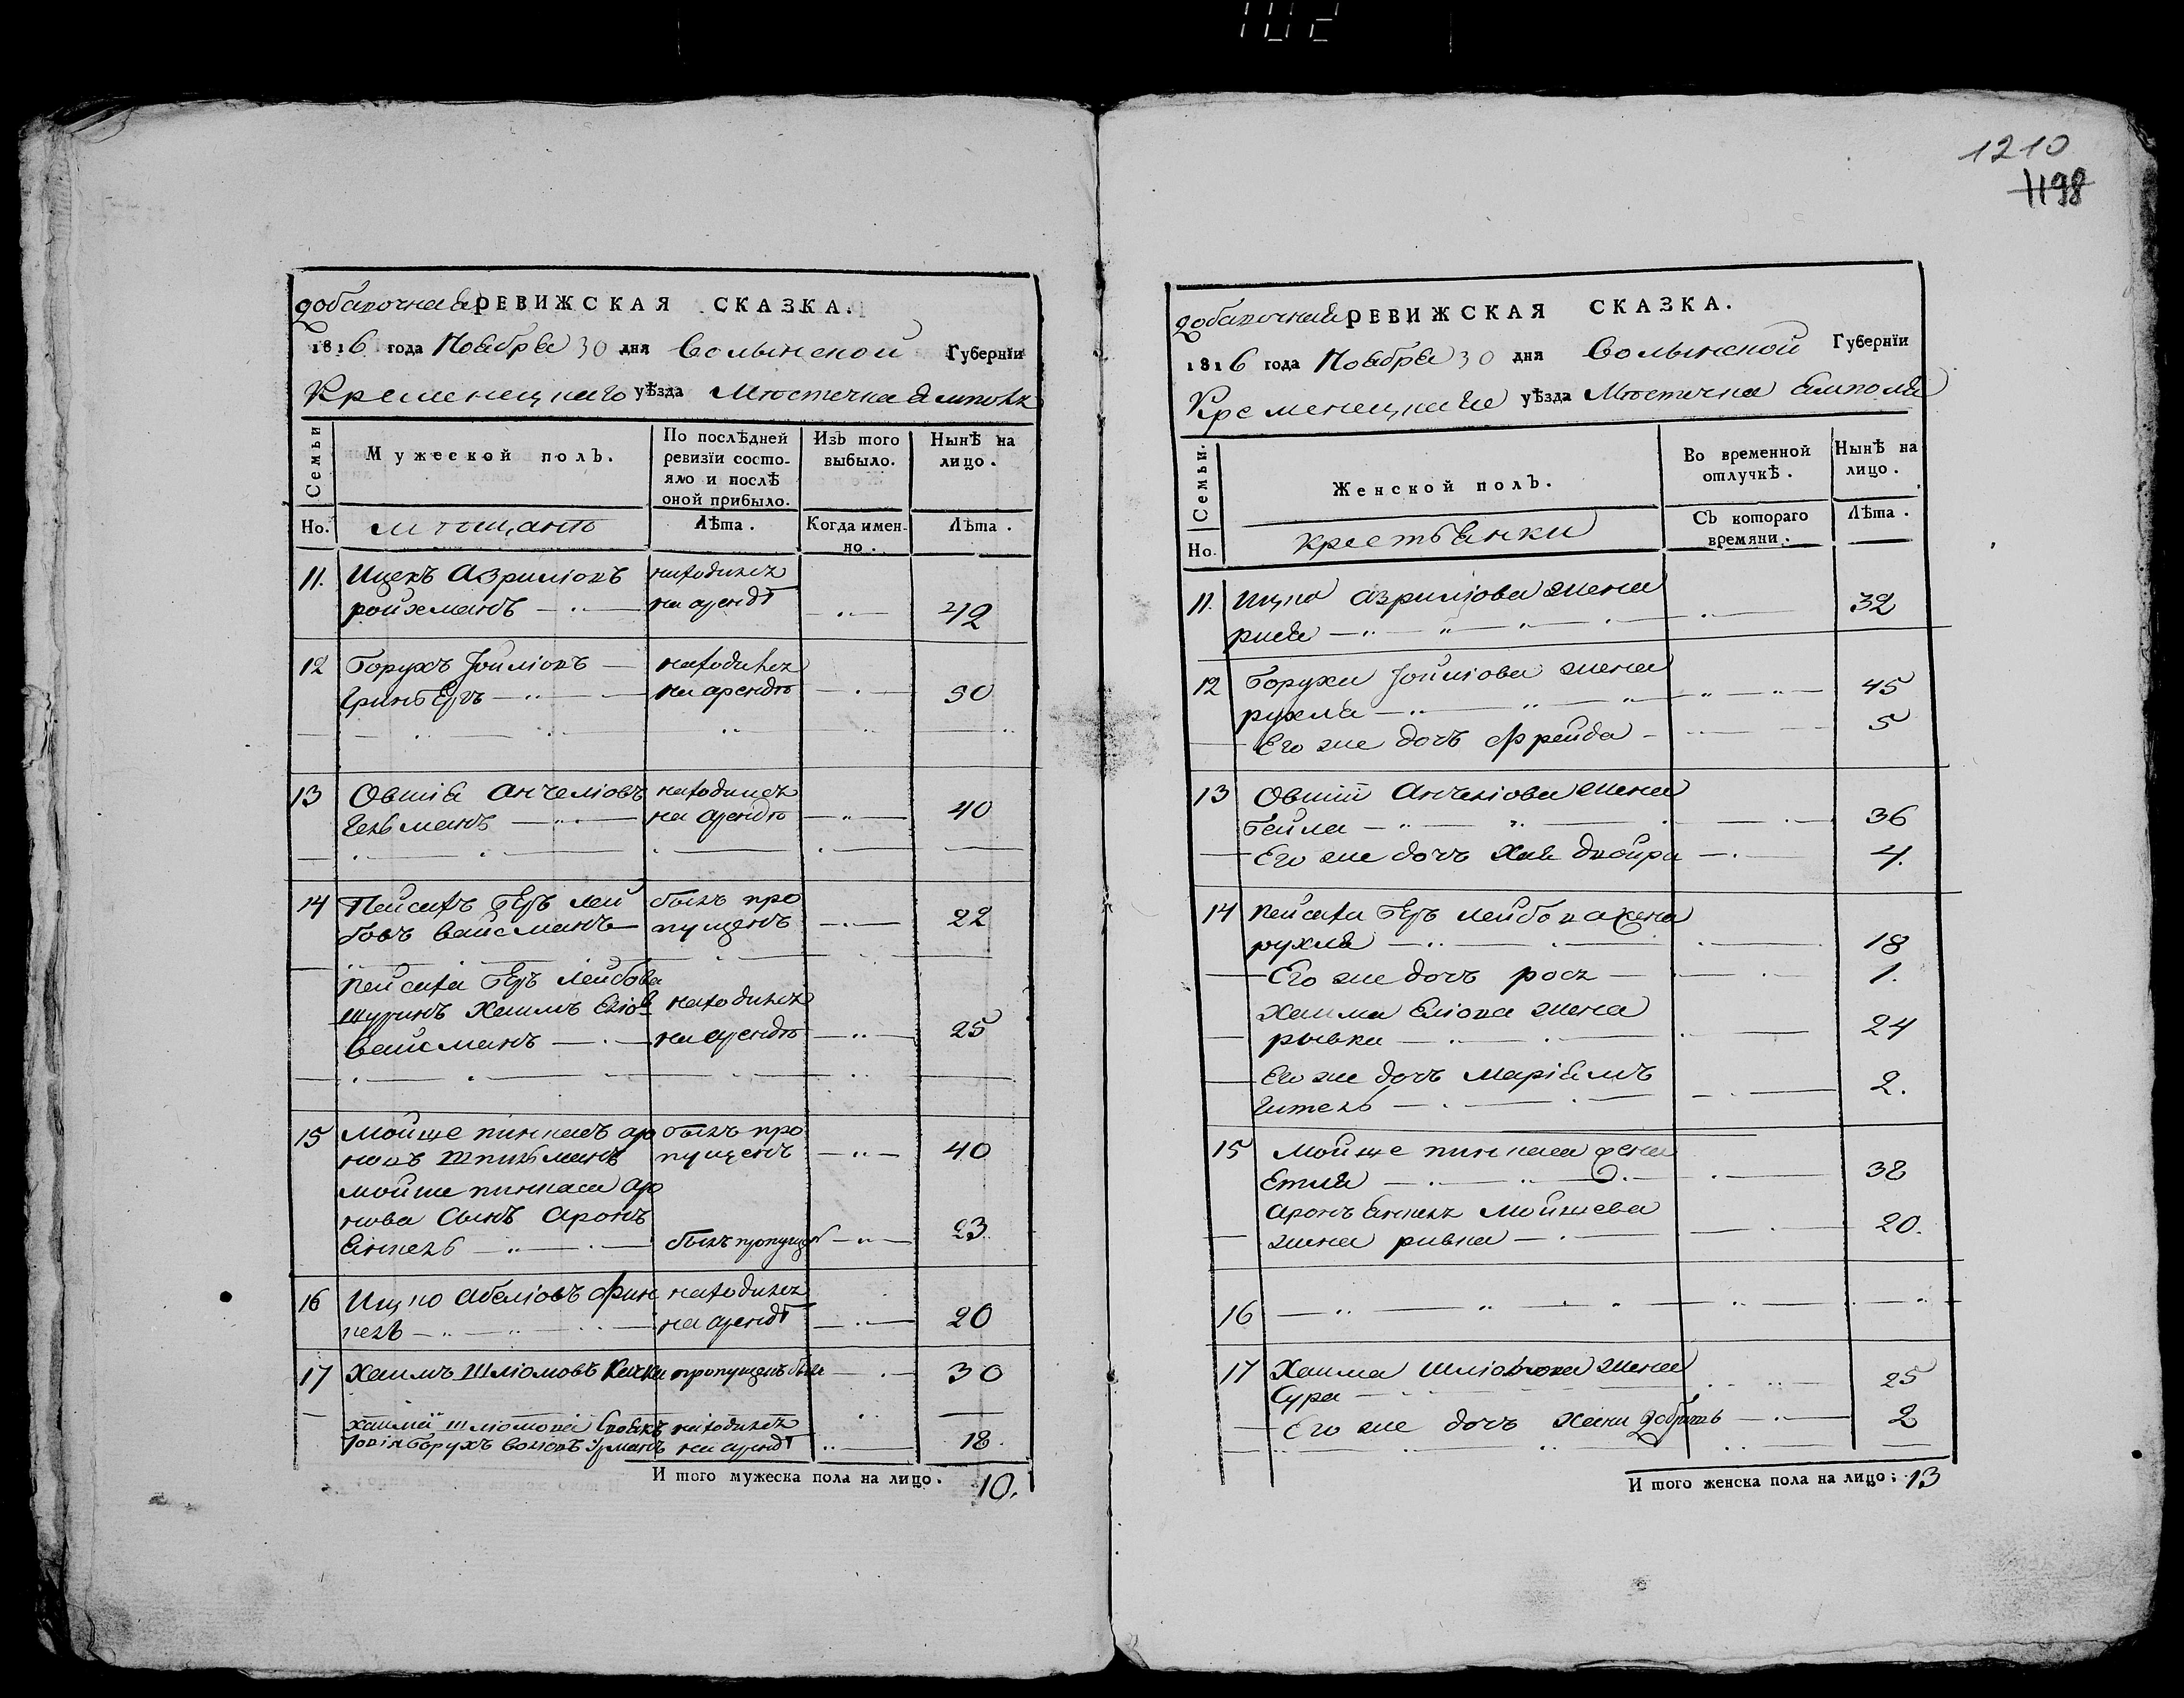 102
1210
1198
добавочная РЕВИЖСКАЯ СКАЗКА.
1816 года Ноября 30 дня Волынской Губернїи
Кременецкаго уѣзда Мѣстечка Ямполя
Семьи
Мужеской полъ.
По послѣдней ревизїи состояло и послѣ оной прибыло.
Изъ того выбыло.
Нынѣ на лицо.
Но.
мѣщанѣ
Лѣта.
Когда именно.
Лѣта.
11. Ицекъ Азриліовъ находился
ройхманъ на арендѣ 42
12 Борухъ Іойліовъ находился
на арендѣ 50
13 Овшія Анчеліовъ находился
Гельманъ на арендѣ 40
14 Пейсахъ Беръ Лей былъ про
бовъ Вайсманъ пущенъ 22
Пейсаха Беръ Лейбова
Шуринъ Хаимъ Еліов находился
Вайсманъ на арендѣ 25
15 Мойше пинкасъ аро былъ про
новъ Шпильманъ пущенъ 40
мойше пинкаса аро
нова Сынъ Аронъ
Янкель былъ пропущен 23
16 Ицко Абеліовъ Фин находился
кель на арендѣ 20
17 Хаимъ Шліомовъ пропущенъ былъ 30
Хаима Шліомова Своякъ находился
Борухъ на арендѣ 18.
И того мужеска пола на лицо. 10.
добавочная РЕВИЖСКАЯ СКАЗКА.
1816 года Ноября 30 дня Волынской Губернїи
Кременецкаго уѣзда Мѣстечка Ямполя
Семьи.
Женской полъ.
Во временной отлучкѣ.
Нынѣ на лицо.
Но.
крестьянки
Съ котораго времяни.
Лѣта.
11. Ицка Азриліова жена
рися 32
12 Боруха Іойліова жена
рухля 45
Его же дочь Фрейда 5
13 Овшіи Анчеліова жена
Бейла 36
Его же дочь Хая двойра 4.
14 Пейсаха Беръ Лейбова жена
рухля 18
Его же дочь рося 1.
Хаима Еліова жена
рывка 24
Его же дочь Маріямъ
Гитель 2.
15 Мойше пинкаса жена
Етля 38
Аронъ Янкеля Мойшева
жена ривка 20.
16
17 Хаима Шліомова жена
Сура 25
Его же дочь Хана 2
И того женска пола на лицо: 13